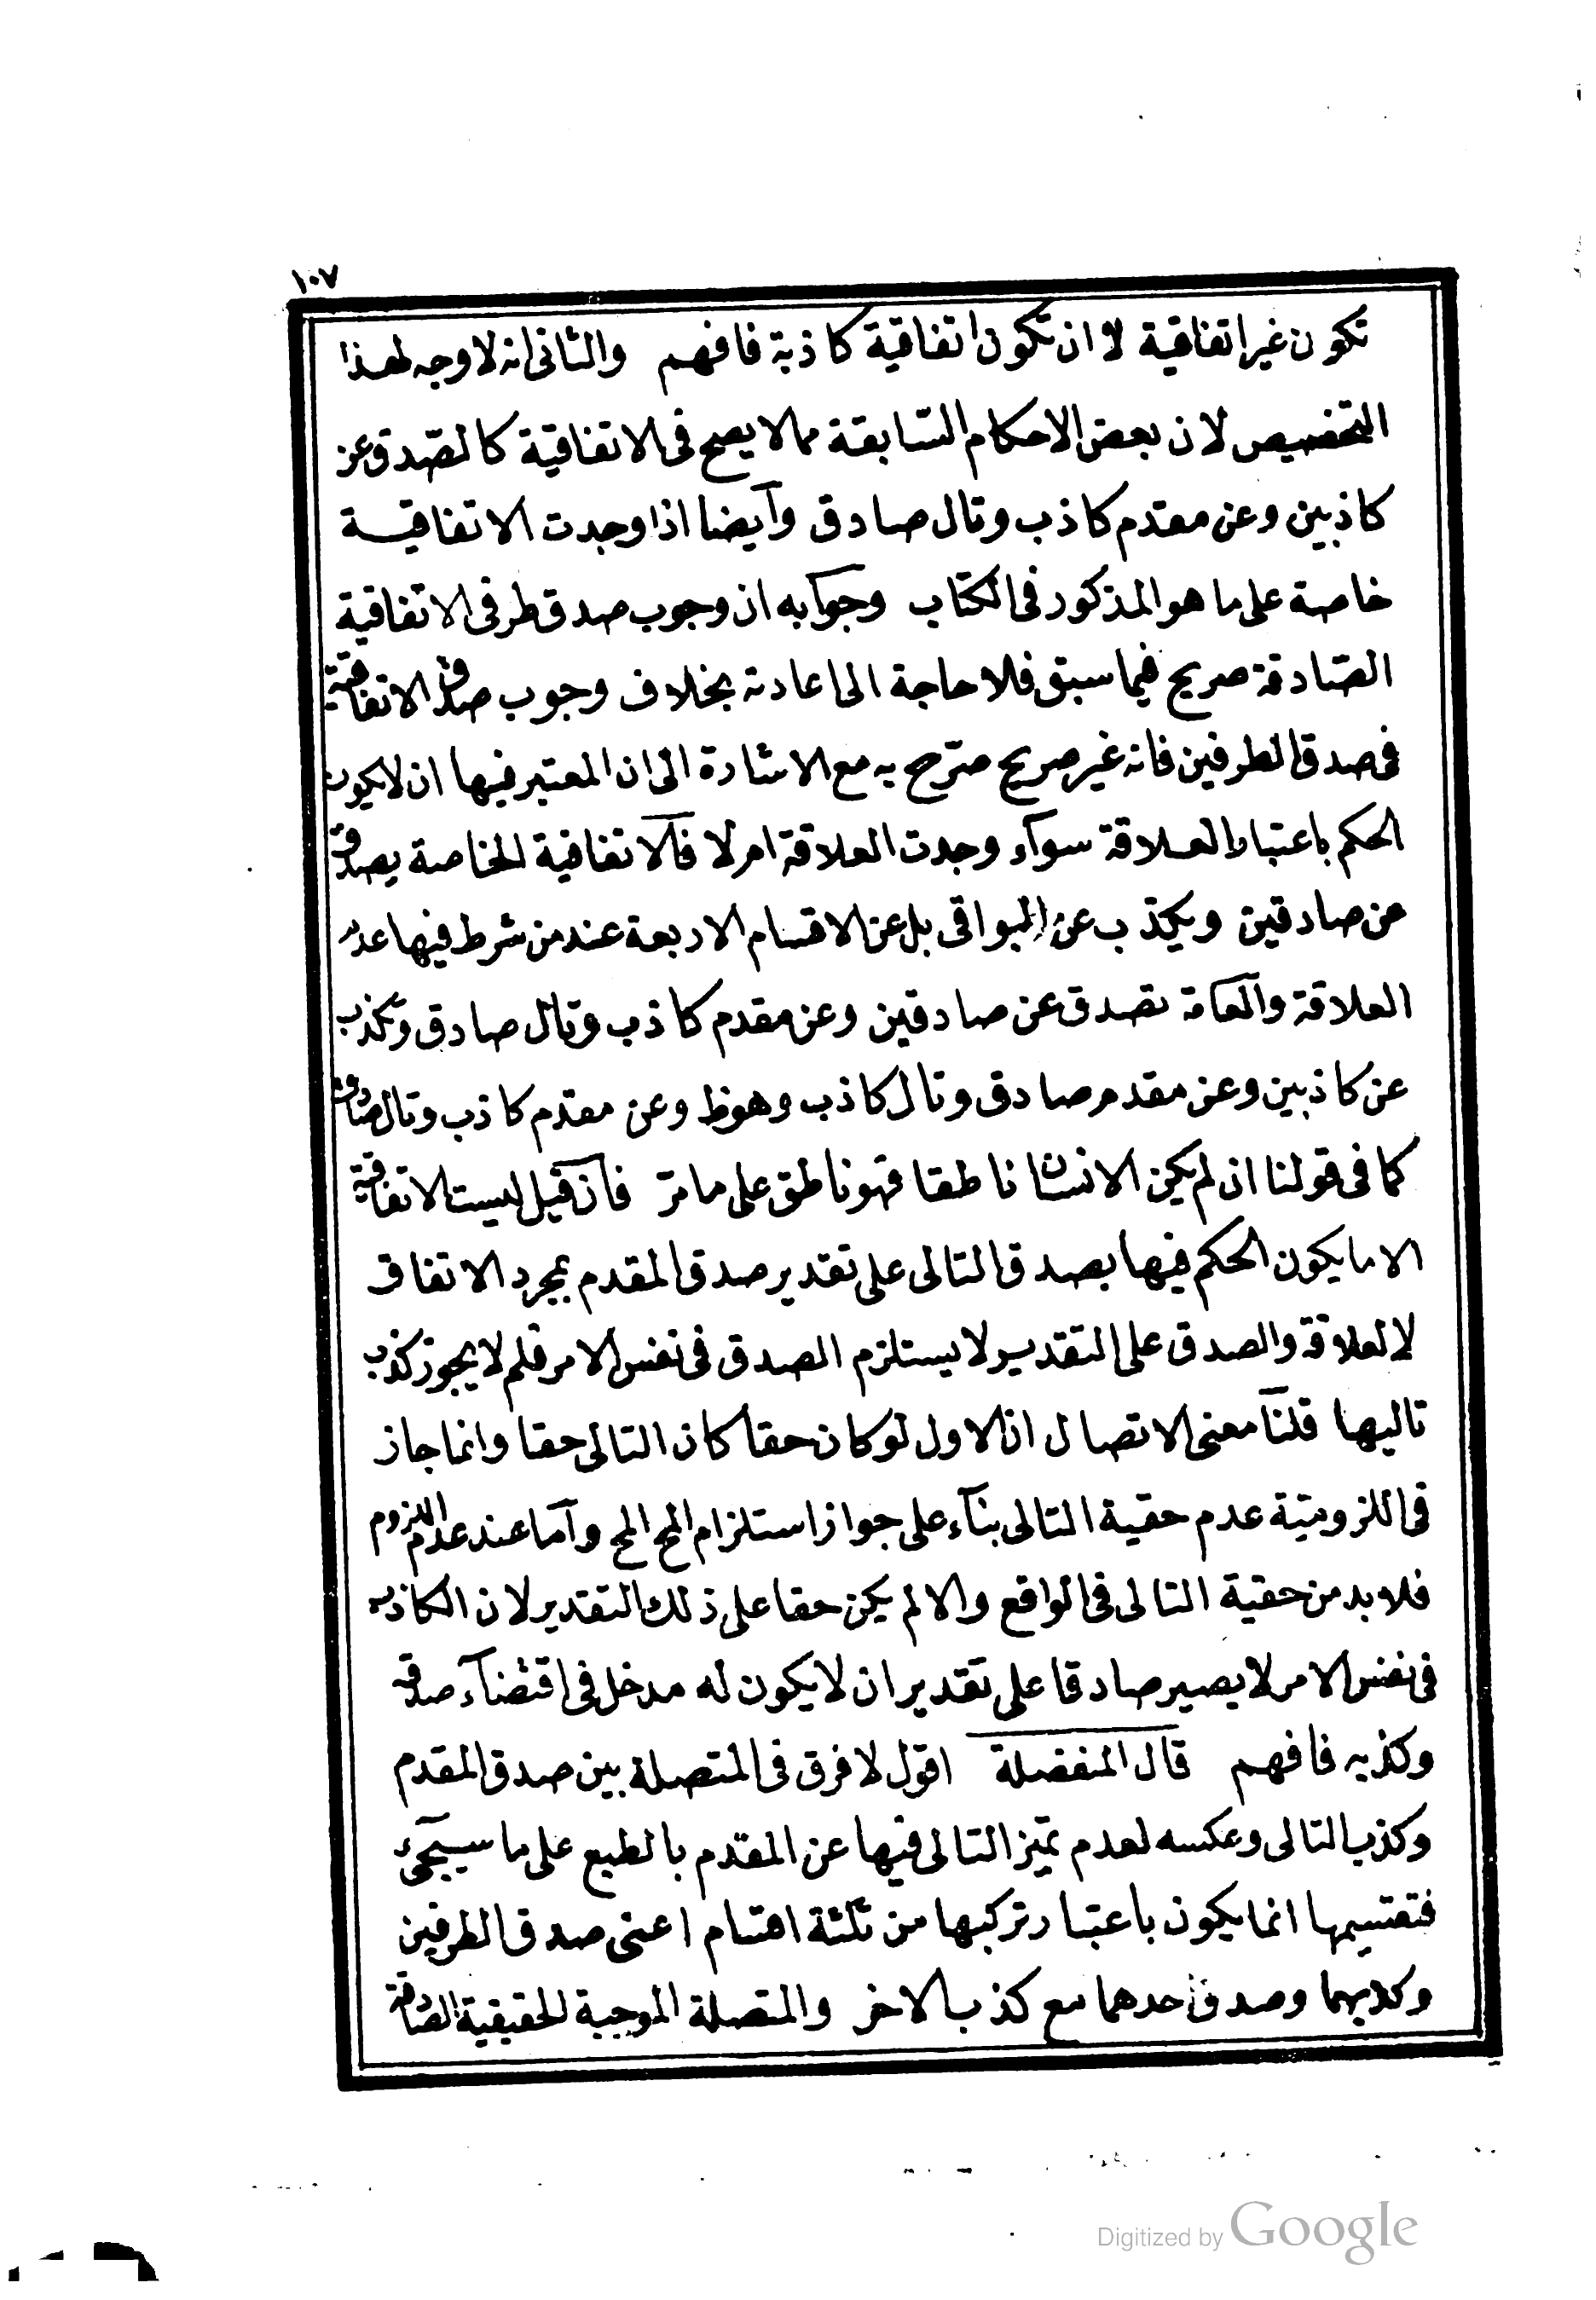 ١٠٧
تكون غير اتفاقية لا ان تكون اتفاقية كاذبة فافهم والثانى انه لا وجه لهذا
التخصيص لان بعض الاحكام السّابقة مما لا يصح فى الاتفاقية كالصّدق عن
كاذبين وعن مقدم كاذب وتال صادق وآيضا اذا وجدت الاتفاقية
خاصة على ما هو المذكور فى الكتاب وجوابه ان وجوب صدق طرفى الاتفاقية
الصّادقة صريح فيما سبق فلا حاجة الى اعادته بخلاف وجوب صدق الاتفاقية
فى صدق الطرفين فانه غير صريح صرّح به مع الاشارة الى ان المعتبر فيها ان لا يكون
الحكم باعتبار العلاقة سوآء وجدت العلاقة ام لا فالاتفاقية الخاصة يصدق
عن صادقين ويكذب عن البواقى بل عن الاقسام الاربعة عند من شرط فيها عدم
العلاقة والعامة تصدق عن صادقين وعن مقدم كاذب وتال صادق وتكذب
عن كاذبين وعن مقدم صادق وتال كاذب وهوظ وعن مقدم كاذب وتال صادق
كما فى قولنا ان لم يكن الانسان ناطقا فهو ناطق على ما مرّ فان قيل ليست الاتفاقية
الا ما يكون الحكم فيها بصدق التالى على تقدير صدق المقدم بمجرد الاتفاق
لا لعلاقة والصدق على التقدير لا يستلزم الصدق فى نفس الامر فلم لا يجوز كذب
تاليها قلنا معنى الاتصال ان الاول لو كان حقا كان التالى حقا وانما جاز
فى اللزوميّة عدم حقية التالى بنآء على جواز استلزام المح المح وآما عند عدم اللزوم
فلا بد من حقية التالى فى الواقع والا لم يكن حقا على ذلك التقدير لان الكاذب
فى نفس الامر لا يصير صادقا على تقدير ان لا يكون له مدخل فى اقتضآء صدقه
وكذبه فافهم قال المنفصلة اقول لا فرق فى المتصلة بين صدق المقدم
وكذب التالى وعكسه لعدم تميّز التالى فيها عن المقدم بالطبع على ما سيجىء
فتقسيمها انما يكون باعتبار تركبها من ثلثة اقسام اعنى صدق الطرفين
وكذبهما وصدق احدهما مع كذب الاخر والمتصلة الموجبة الحقيقية الصّادقة
Digitized by Google